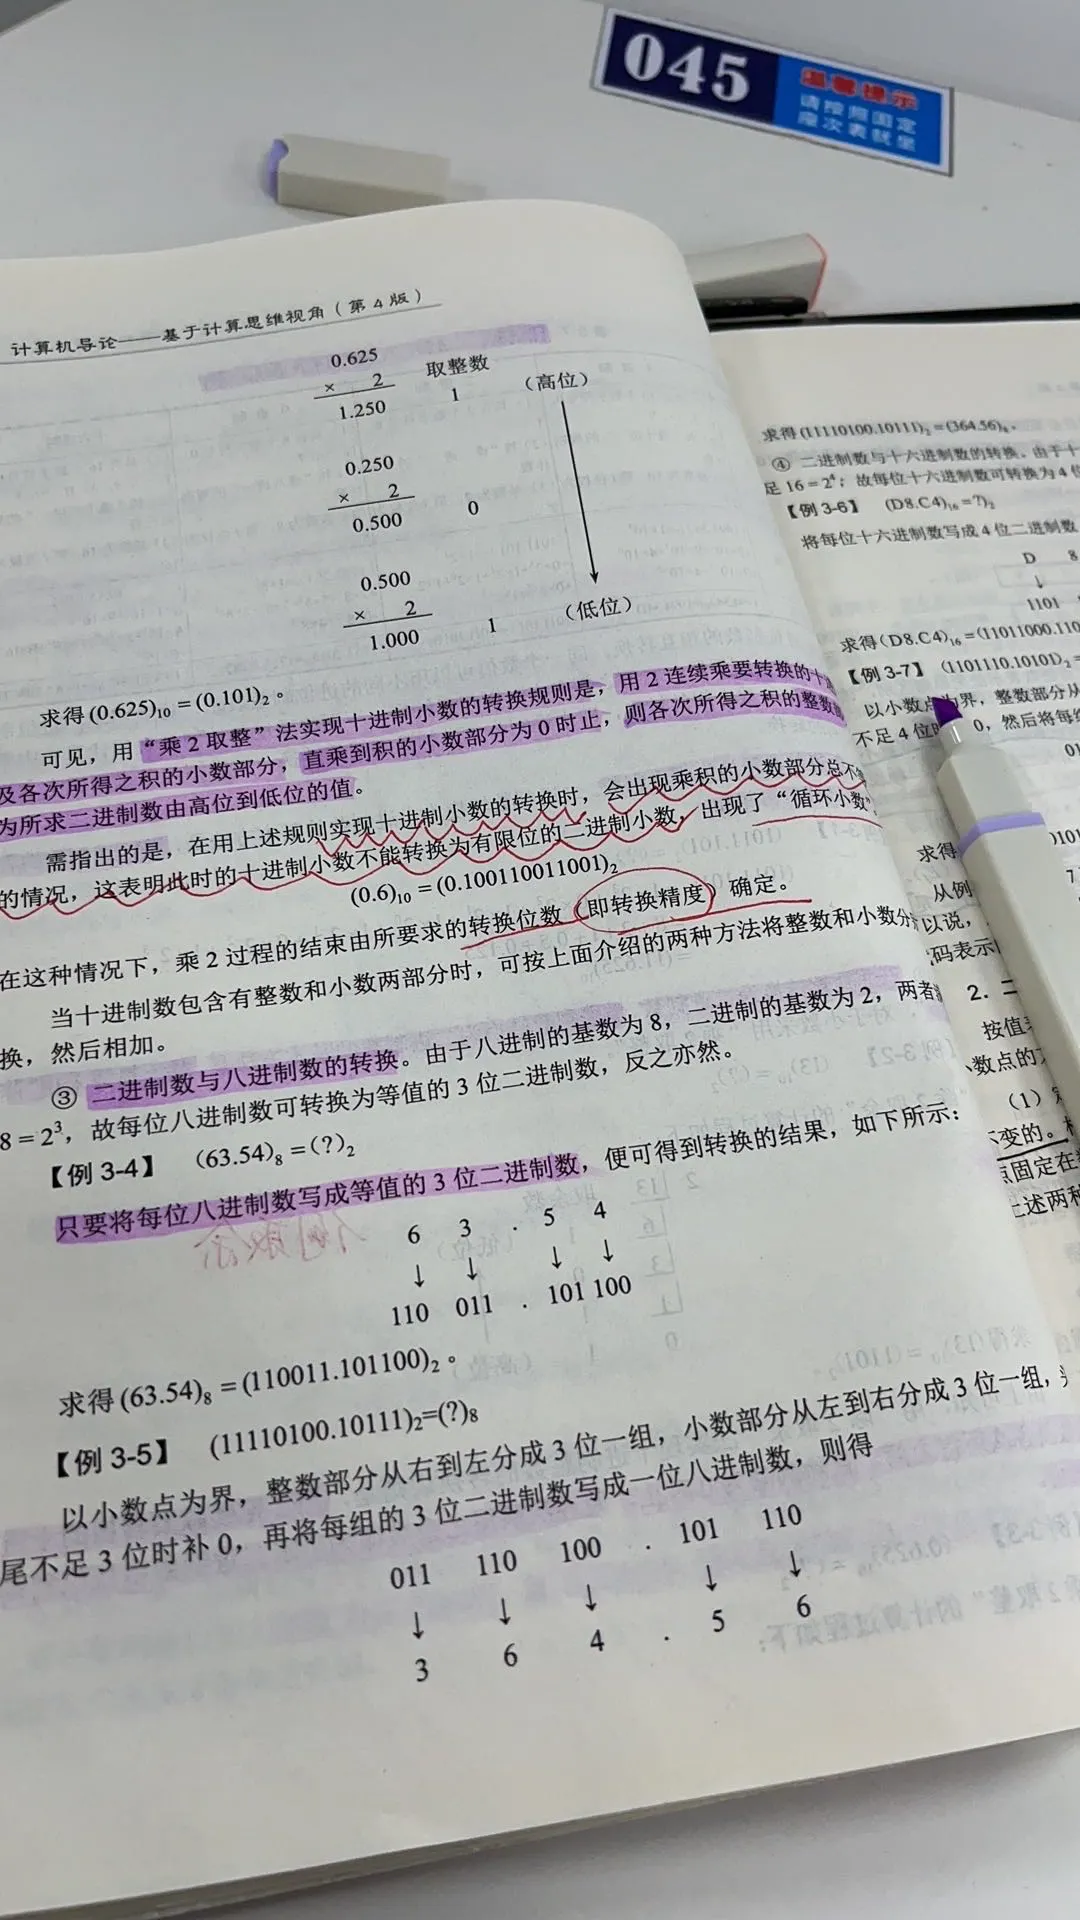 045
温馨提示
请按照固定
座次表就坐
计算机导论——基于计算思维视角（第4版）
0.625
× 2
取整数
1.250
1
（高位）
0.250
× 2
0.500
0
0.500
× 2
1.000
1
（低位）
求得(0.625)₁₀=(0.101)₂。
可见，用“乘2取整”法实现十进制小数的转换规则是，用2连续乘要转换的十进
及各次所得之积的小数部分，直乘到积的小数部分为0时止，则各次所得之积的整数
为所求二进制数由高位到低位的值。
需指出的是，在用上述规则实现十进制小数的转换时，会出现乘积的小数部分总不
的情况，这表明此时的十进制小数不能转换为有限位的二进制小数，出现了“循环小数”
(0.6)₁₀=(0.100110011001)₂
在这种情况下，乘2过程的结束由所要求的转换位数（即转换精度）确定。
当十进制数包含有整数和小数两部分时，可按上面介绍的两种方法将整数和小数分
换，然后相加。
③ 二进制数与八进制数的转换。由于八进制的基数为8，二进制的基数为2，两者
8=2³，故每位八进制数可转换为等值的3位二进制数，反之亦然。
【例3-4】 (63.54)₈=(?)₂
只要将每位八进制数写成等值的3位二进制数，便可得到转换的结果，如下所示：
6 3 . 5 4
↓ ↓ ↓ ↓
110 011 . 101 100
求得(63.54)₈=(110011.101100)₂。
【例3-5】 (11110100.10111)₂=(?)₈
以小数点为界，整数部分从右到左分成3位一组，小数部分从左到右分成3位一组，
尾不足3位时补0，再将每组的3位二进制数写成一位八进制数，则得
011 110 100 . 101 110
↓ ↓ ↓ ↓ ↓
3 6 4 . 5 6
求得(11110100.10111)₂=(364.56)₈。
④ 二进制数与十六进制数的转换。由于十
足16=2⁴；故每位十六进制数可转换为4位
【例3-6】 (D8.C4)₁₆=?)₂
将每位十六进制数写成4位二进制数
D 8
↓
1101
求得(D8.C4)₁₆=(11011000.110
【例3-7】 (1101110.10101)₂=
以小数点为界，整数部分从
不足4位时 0，然后将每组
求得
从例
以说，
码表示
2. 二
按值
小数点的
（1）定
不变的。
点固定在
上述两种